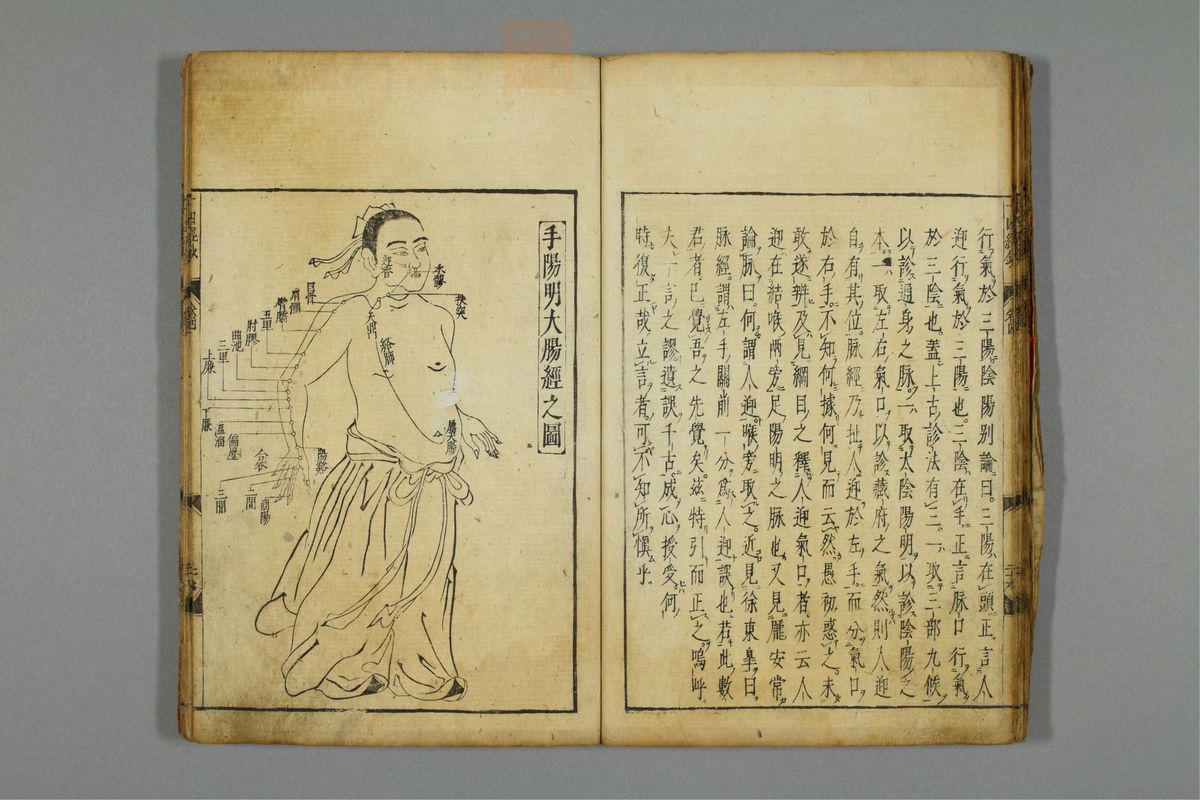 行氣於三陽陰陽別論曰三陽在頭正言人
迎行氣於三陽也三陰在手正言脉口行氣
於三陰也蓋上古診法有三一取三部九候
以診通身之脉一取太陰陽明以診陰陽之
本一取左右氣口以診藏府之氣然則人迎
自有其位脉經乃扯人迎於左手而分氣口
於右手不知何據何見而云然愚初惑之未
敢遂辨及見綱目之釋人迎氣口者亦云人
迎在結喉兩旁足陽明之脉也又見龐安常
論脉曰何謂人迎喉旁取之近見徐東皐曰
脉經謂左手關前一分爲人迎誤也若此數
君者已覺吾之先覺矣茲特引而正之嗚呼
夫一言之謬遺誤千古成心授受何
時復正哉立言者可不知所慎乎
手陽明大腸經之圖
水
扶突
天鼎
巨骨
肩髃
臂臑
五里
肘髎
曲池
三里
上廉
下廉
温溜
偏歷
陽谿
合谷
三間
二間
商陽
屬大腸
絡肺